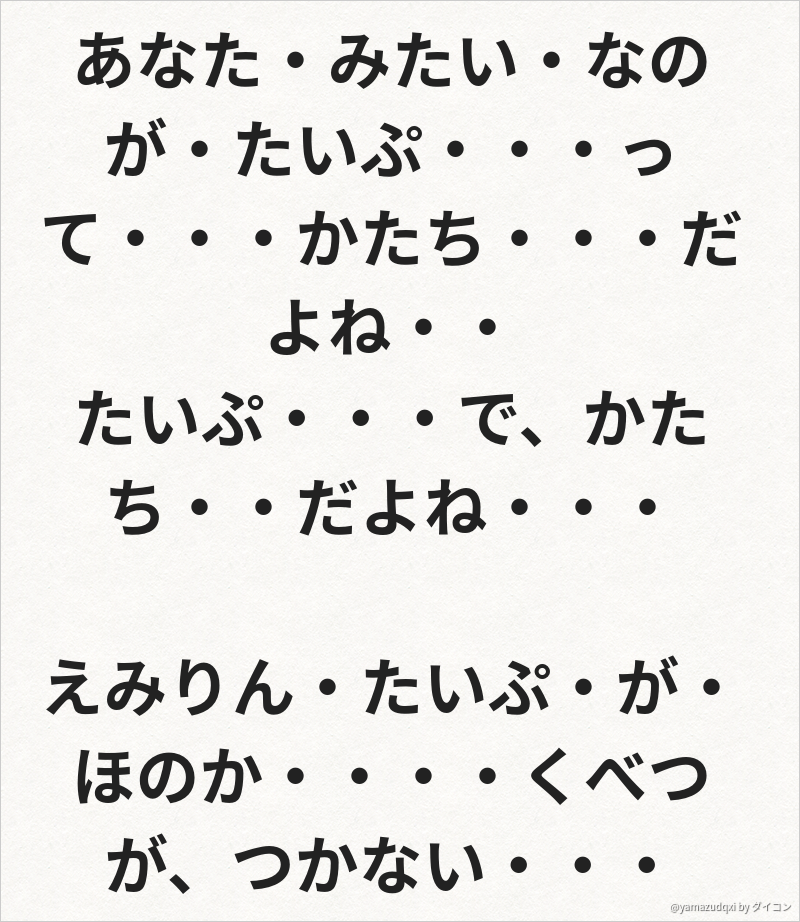 あなた・みたい・なの
が・たいぷ・・・っ
て・・・かたち・・・だ
よね・・
たいぷ・・・で、かた
ち・・だよね・・・
えみりん・たいぷ・が・
ほのか・・・・くべつ
が、つかない・・・
@yamazudqxi by ダイコン